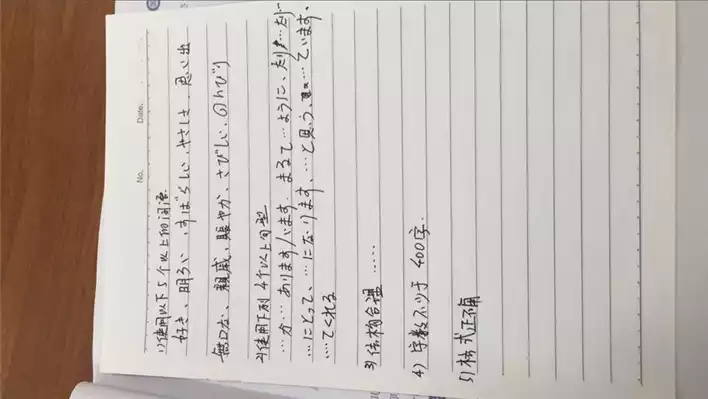 No.
Date.
1)使用以下5个以上的词语
好き、明るい、すばらしい、やさしさ、思い出
無口な、親戚、賑やか、さびしい、のんびり
2)使用下列4个以上句型
…が…あります/います、まるで…ように、たり…たり…
…にとって、…になります、…と思う、…ています。
…てくれる
3)结构合理 ……
4)字数不少于 400字.
5)格式正确